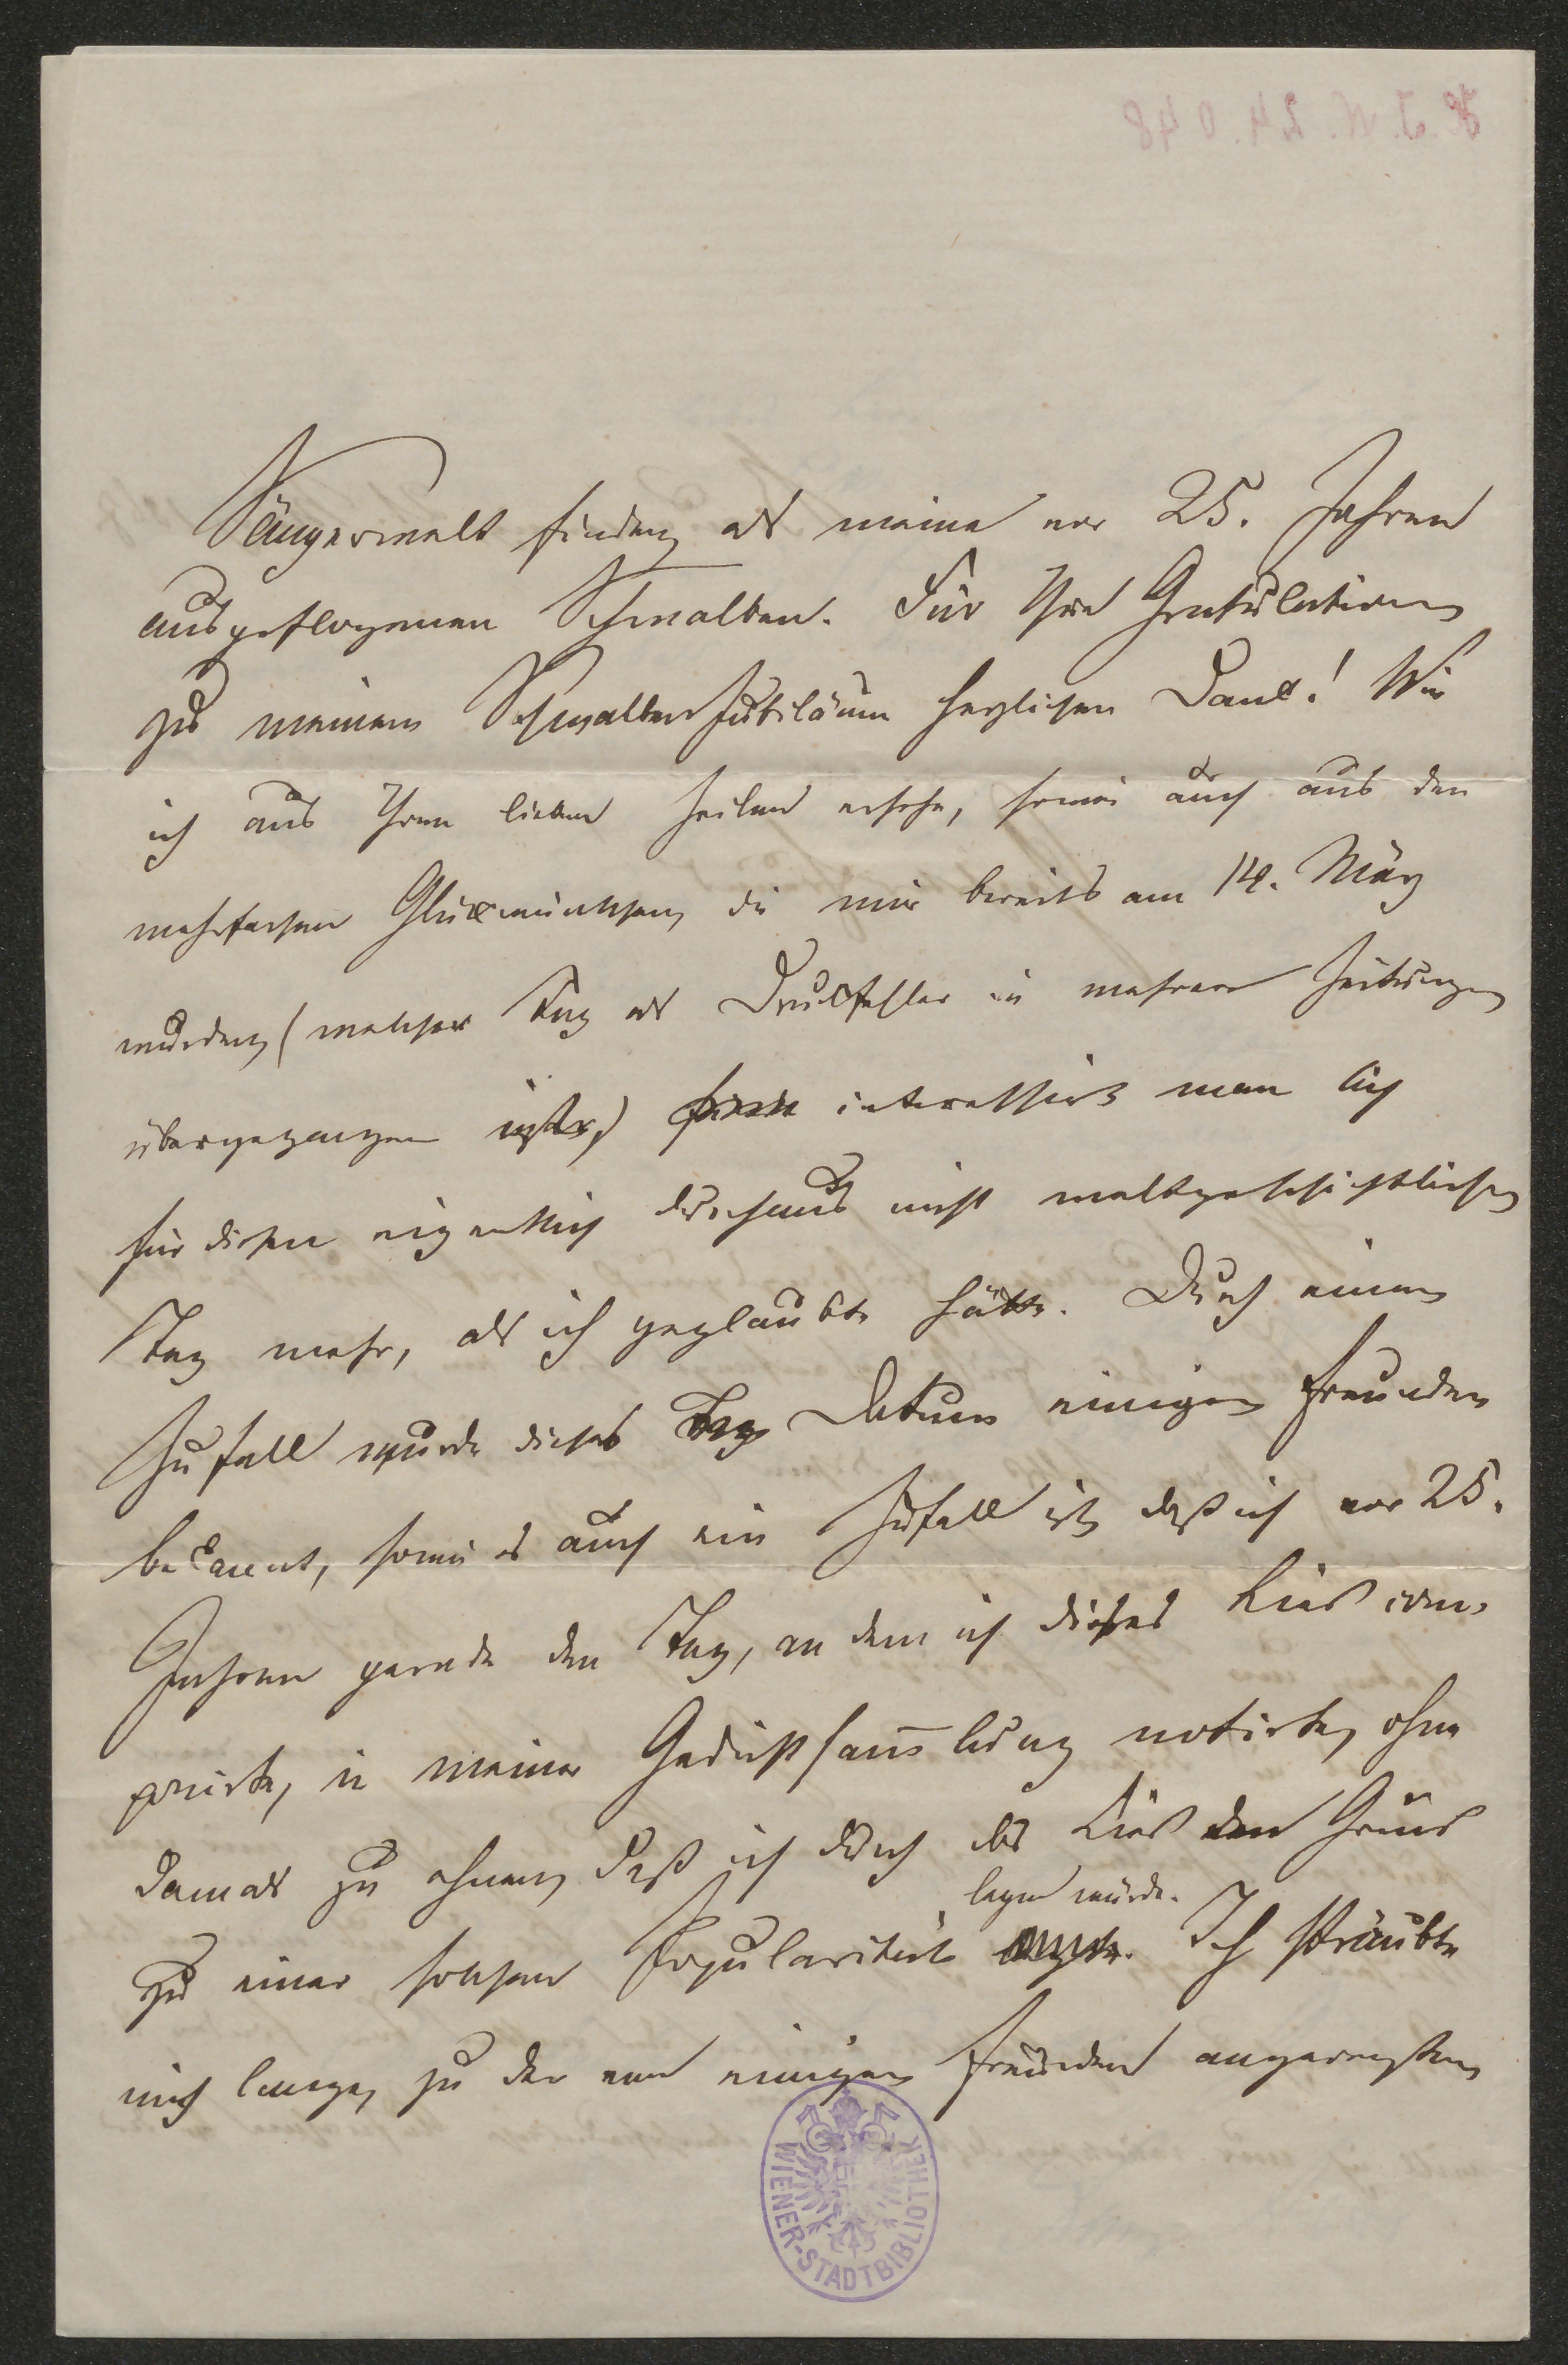 H. I. N. 24.048
Sängerwelt finden, als meine vor 25. Jahren
ausgeflogenen Schwalben. Für Ihre Gratulation
zu meinem Schwalbenjubiläum herzlichen Dank! Wie
ich aus Ihren lieben Zeilen ersehe, sowie auch aus den
mehrfachen Glückwünschen, die mir bereits am 14. März
wurden, (welcher Tag als Druckfehler in mehrere Zeitungen
übergegangen ist,) interessirt man sich
für diesen eigentlich durchaus nicht weltgeschichtlichen
Tag mehr, als ich geglaubt hätte. Durch einen
Zufall wurde dieses Tag Datum einigen Freunden
bekannt, sowie es auch ein Zufall ist, daß ich vor 25.
Jahren gerade den Tag, an dem ich dieses Lied com-
ponirte, in meiner Gedichtsam̅lung notirte, ohne
damals zu ahnen, daß ich durch das Lied den Grund
legen würde.
zu einer solchen Popularität Ich sträubte
mich lange, zu der von einigen Freunden angeregten
WIENER-STADTBIBLIOTHEK